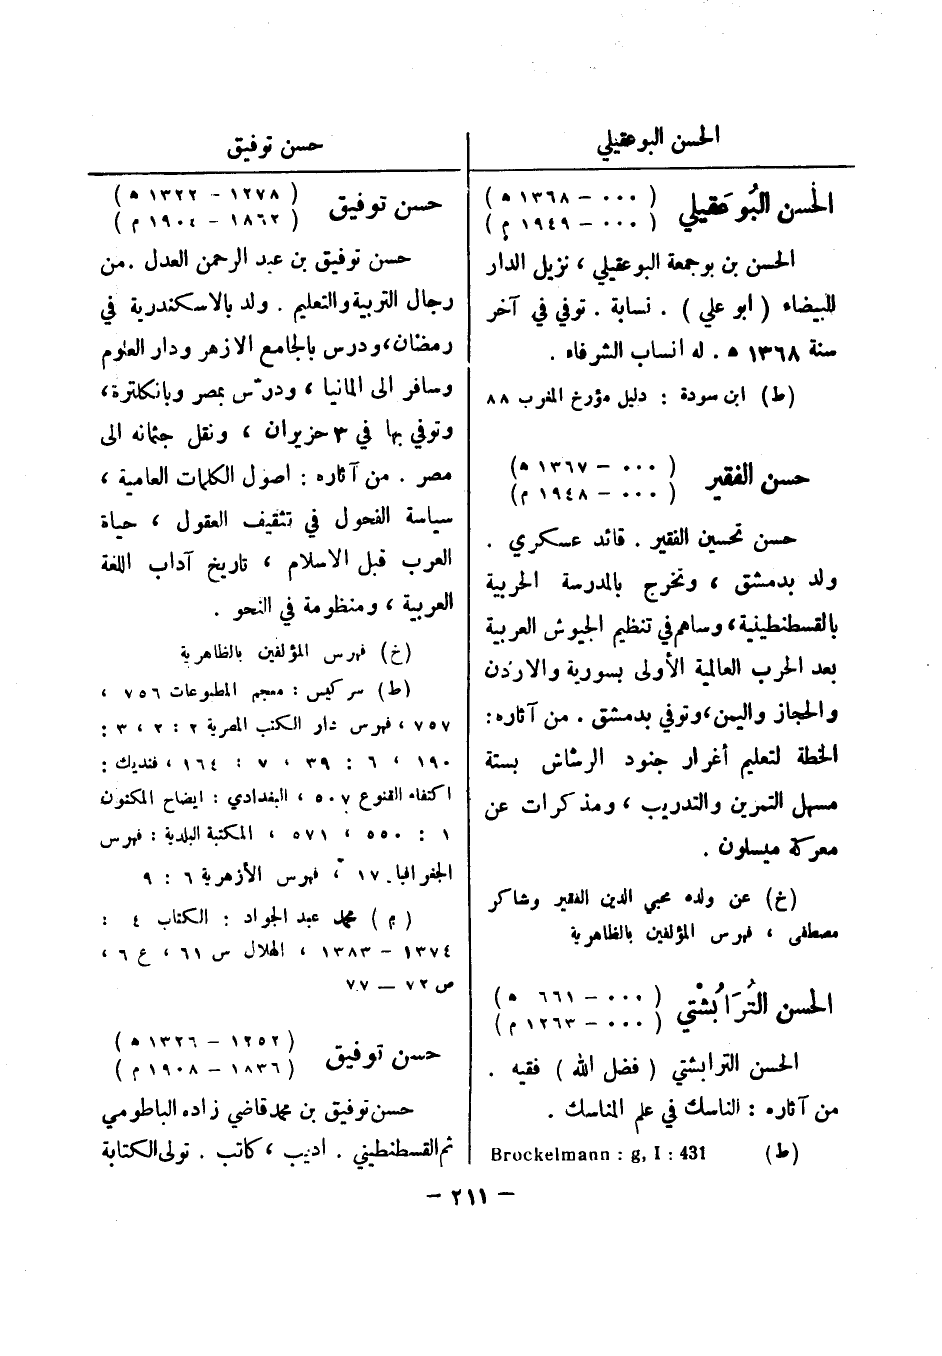 الحسن البوعقيلي
الحسن البُوعَقيلي ( ٠٠٠ – ١٣٦٨ ه )
( ٠٠٠ – ١٩٤٩ م )
الحسن بن بوجمعة البوعقيلي ، نزيل الدار
للبيضاء ( ابو علي ) . نسابة . توفي في آخر
سنة ١٣٦٨ ه . له انساب الشرفاء .
(ط) ابن سودة : دليل مؤرخ المغرب ٨٨
حسن الفقير ( ٠٠٠ – ١٣٦٧ ه )
( ٠٠٠ – ١٩٤٨ م )
حسن تحسين الفقير . قائد عسكري .
ولد بدمشق ، وتخرج بالمدرسة الحربية
بالقسطنطينية ، وساهم في تنظيم الجيوش العربية
بعد الحرب العالمية الأولى بسورية والاردن
والحجاز واليمن ، وتوفي بدمشق . من آثاره :
الخطة لتعليم أغرار جنود الرشاش بستة
مسهل التمرين والتدريب ، ومذكرات عن
معركة ميسلون .
(خ) عن ولده محيي الدين الفقير وشاكر
مصطفى ، فهرس المؤلفين بالظاهرية
الحسن التُرَابُشْتي ( ٠٠٠ – ٦٦١ ه )
( ٠٠٠ – ١٢٦٣ م )
الحسن الترابشتي ( فضل الله ) فقيه .
من آثاره : الناسك في علم المناسك .
(ط) Brockelmann : g, I : 431
حسن توفيق
حسن توفيق ( ١٢٧٨ – ١٣٢٢ ه )
( ١٨٦٢ – ١٩٠٤ م )
حسن توفيق بن عبد الرحمن العدل . من
رجال التربية والتعليم . ولد بالاسكندرية في
رمضان ، ودرس بالجامع الازهر ودار العلوم
وسافر الى المانيا ، ودرّس بمصر وبانكلترة ،
وتوفي بها في ٣ حزيران ، ونقل جثمانه الى
مصر . من آثاره : اصول الكلمات العامية ،
سياسة الفحول في تثقيف العقول ، حياة
العرب قبل الاسلام ، تاريخ آداب اللغة
العربية ، ومنظومة في النحو .
(خ) فهرس المؤلفين بالظاهرية
(ط) سركيس : معجم المطبوعات ٧٥٦ ،
٧٥٧ ، فهرس دار الكتب المصرية ٢ : ٢ ، ٣ :
١٩٠ ، ٦ : ٣٩ ، ٧ : ١٦٤ ، فنديك :
اكتفاء القنوع ٥٠٧ ، البغدادي : ايضاح المكنون
١ : ٥٥٠ ، ٥٧١ ، المكتبة البلدية : فهرس
الجغرافيا ١٧ ، فهرس الأزهرية ٦ : ٩
( م ) محمد عبد الجواد : الكتاب ٤ :
١٣٧٤ – ١٣٨٣ ، الهلال س ٦١ ، ع ٦ ،
ص ٧٢ – ٧٧
حسن توفيق ( ١٢٥٢ – ١٣٢٦ ه )
( ١٨٣٦ – ١٩٠٨ م )
حسن توفيق بن محمد قاضي زاده الباطومي
ثم القسطنطيني . اديب ، كاتب . تولى الكتابة
– ٢١١ –